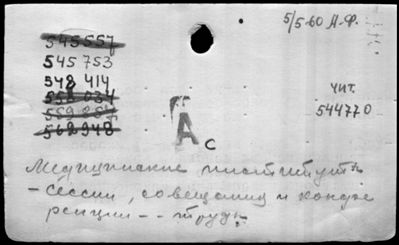 5/5-60 А.Ф.
545557
545 753
548 414
чит.
544770
А с
Медицинские институты
- сессии, совещания и конфе
ренции -- труды